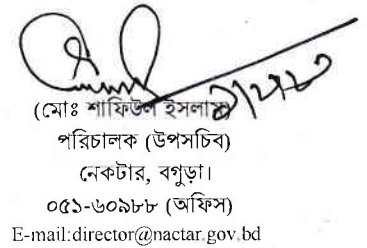 (মোঃ শাফিউল ইসলাম)
পরিচালক (উপসচিব)
নেকটার, বগুড়া।
০৫১-৬০৯৮৮ (অফিস)
E-mail:director@nactar.gov.bd